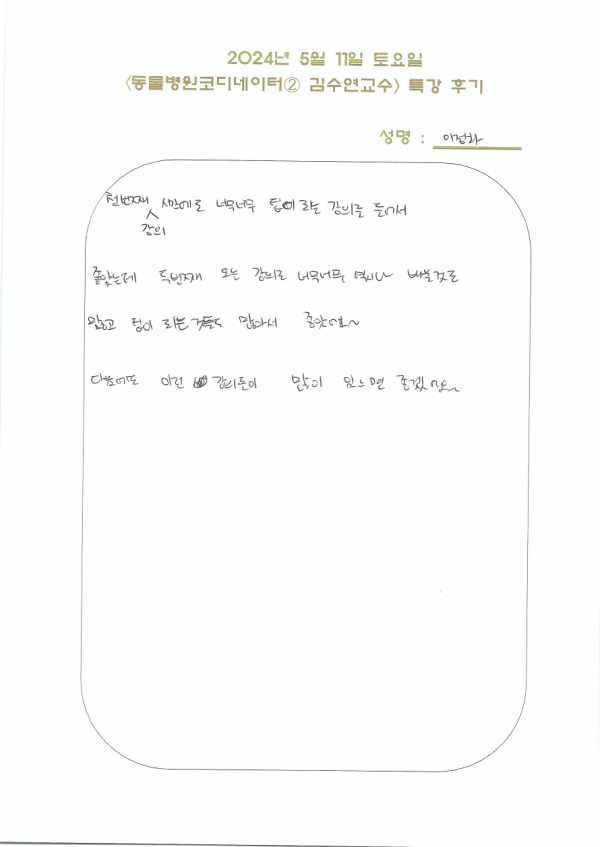 2024년 5월 11일 토요일
<동물병원코디네이터② 김수연교수> 특강 후기
성명 : 이정화
첫번째 강의 너무너무 팁이 되는 강의를 들어서
좋았는데 두번째 오는 강의로 너무너무 역시나 배울것도
많고 팁이 되는 것들도 많아서 좋앗어요~
다음에도 이런 강의들이 많이 있느면 좋겠어요~